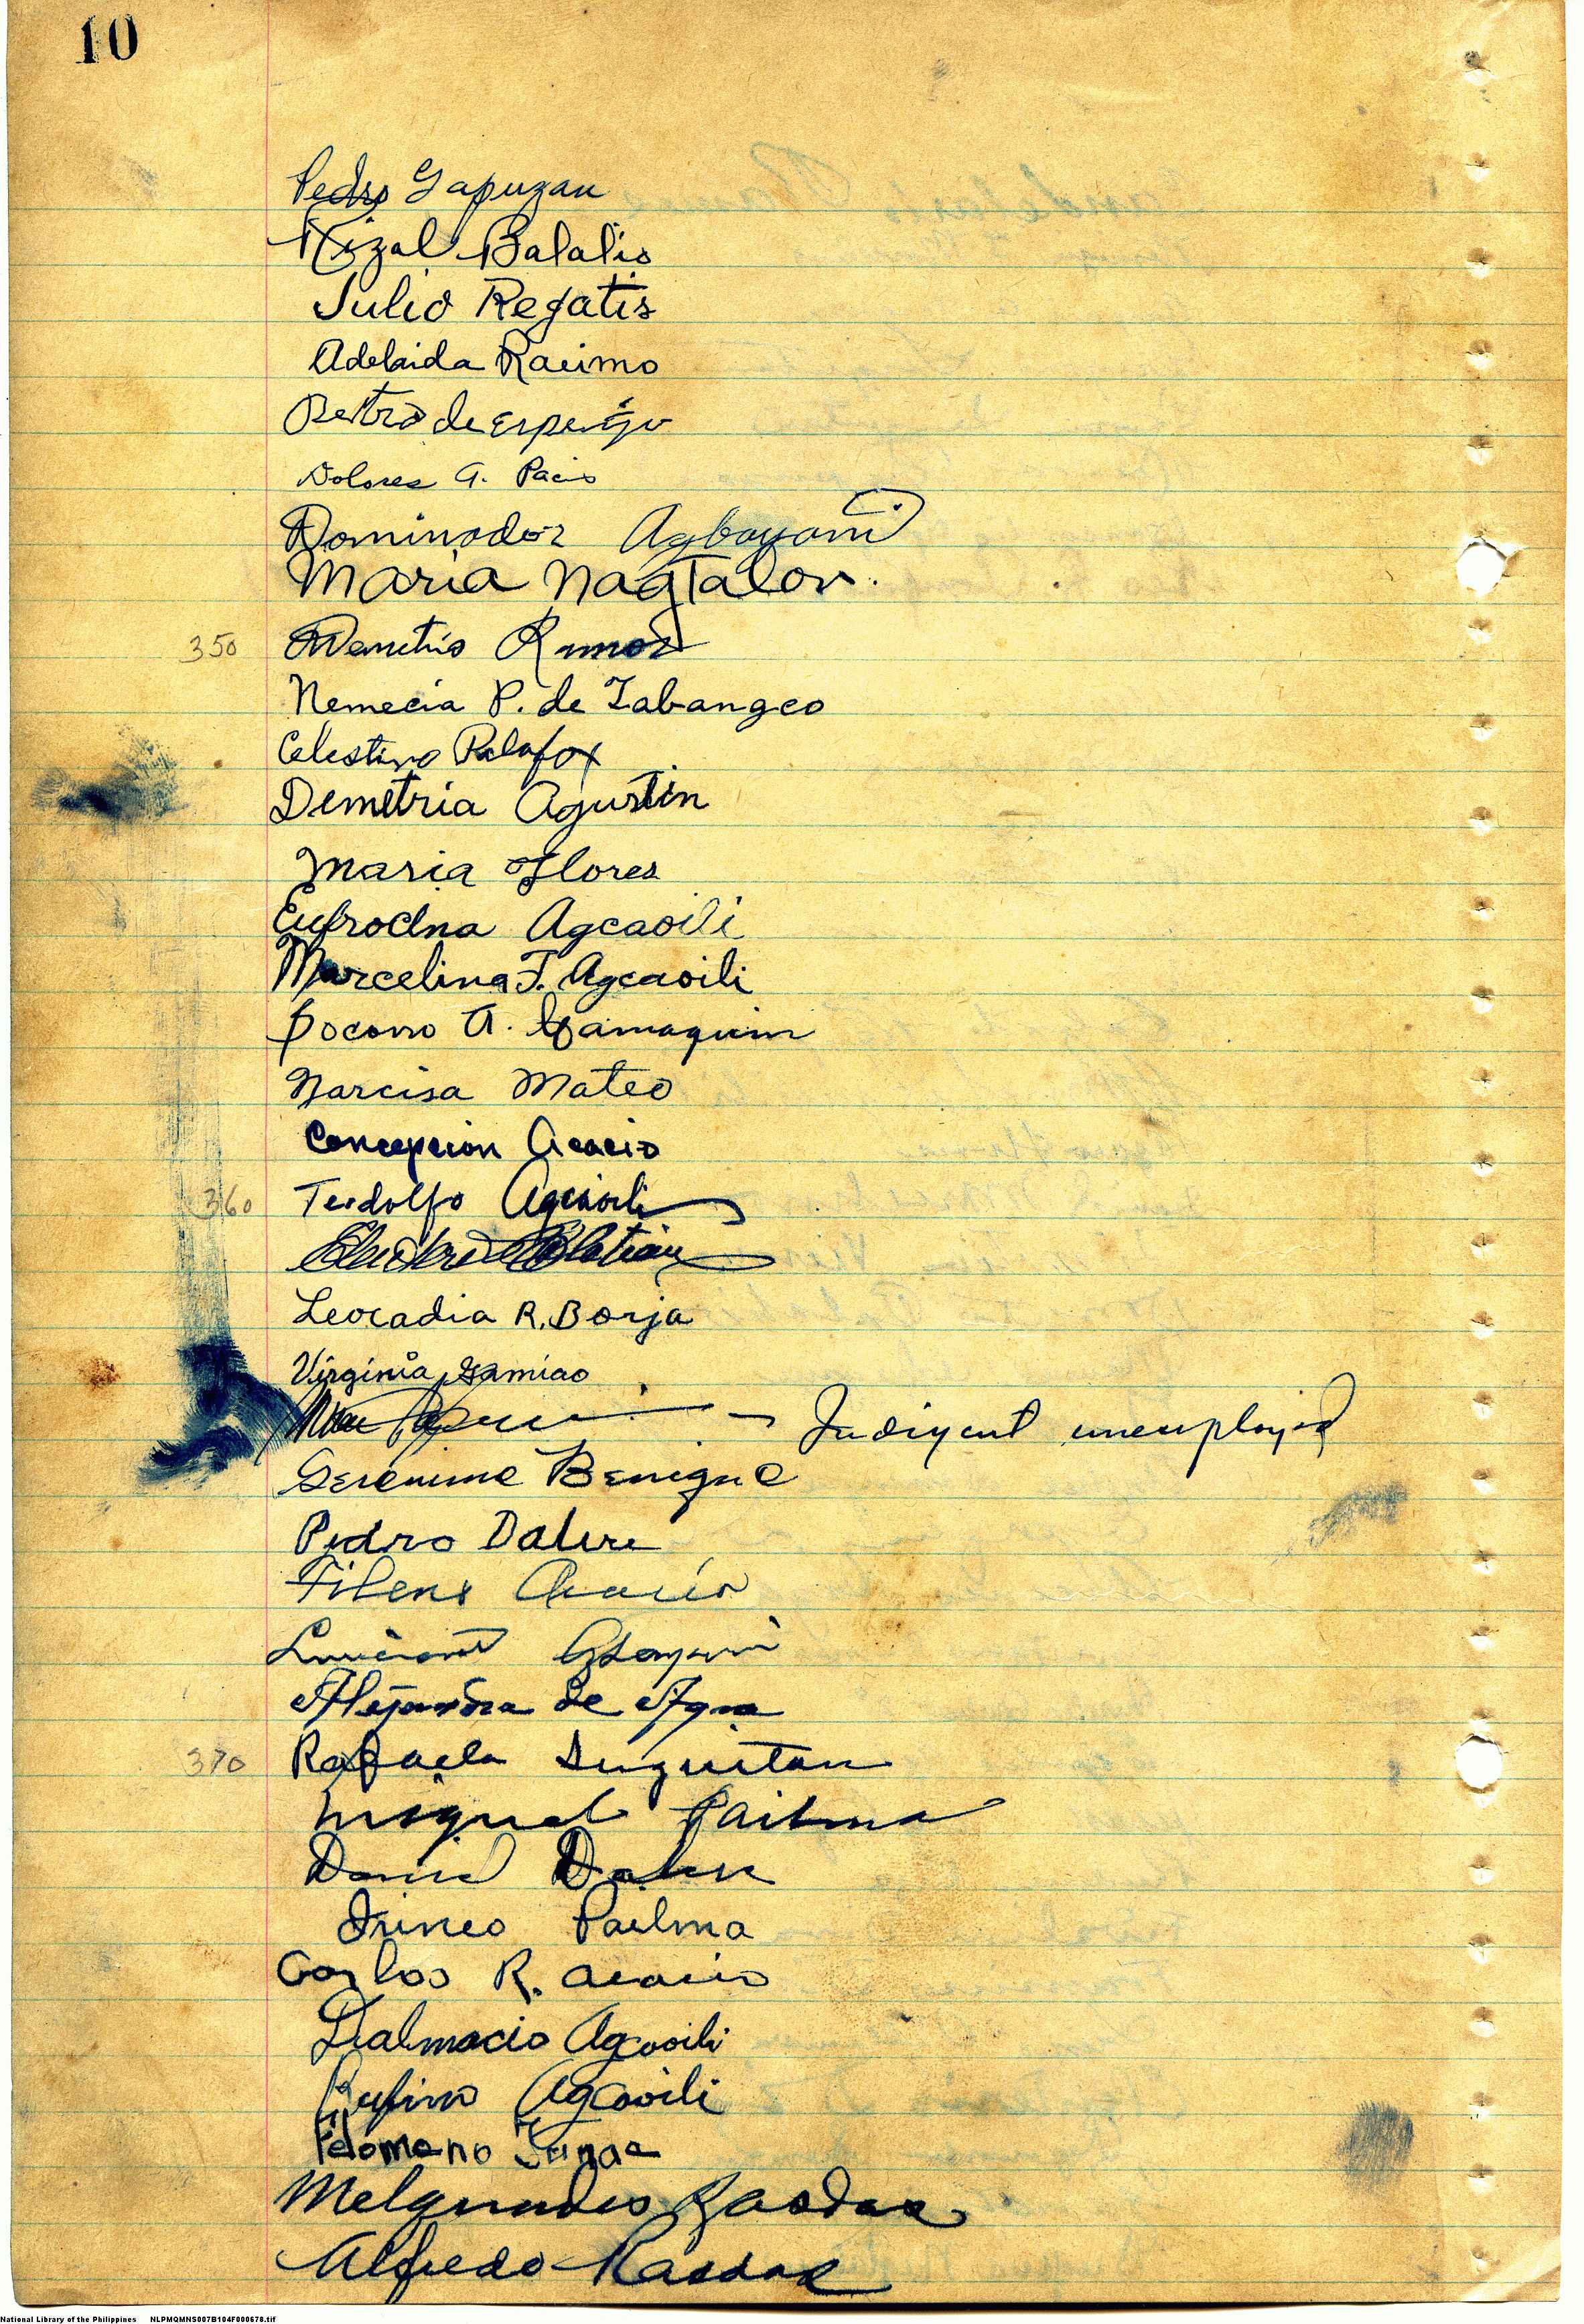 10
Pedro Gapuzan
Rizal Balalio
Julio Regatis
Adelaida Racimo
de
Dolores A. Pacis
Dominador Agbayani
Maria Nagtalon.
350 Demetrio Ramos
Nemecia P. de Tabangco
Celestino Palafox
Demetria Agustin
Maria Flores
Eufrocina Agcaoili
Marcelina T. Agcaoili
Socorro A.
Narcisa Mateo
Concepcion Acacio
360 Teodolfo Agcaoili
Leocadia R. Borja
Virginia Gamiao
— Indigent unemployed
Geronimo Benigno
Pedro Dalere
Acacio
Alejandra de Agua
370 Rafaela Suguitan
Miguel Pailma
David
Irineo Pailma
Carlos R. Acacio
Dalmacio Agcaoili
Rufino Agcaoili
Melquiades Rasdas
Alfredo Rasdas
National Library of the Philippines NLPMQMNS007B104F000678.tif